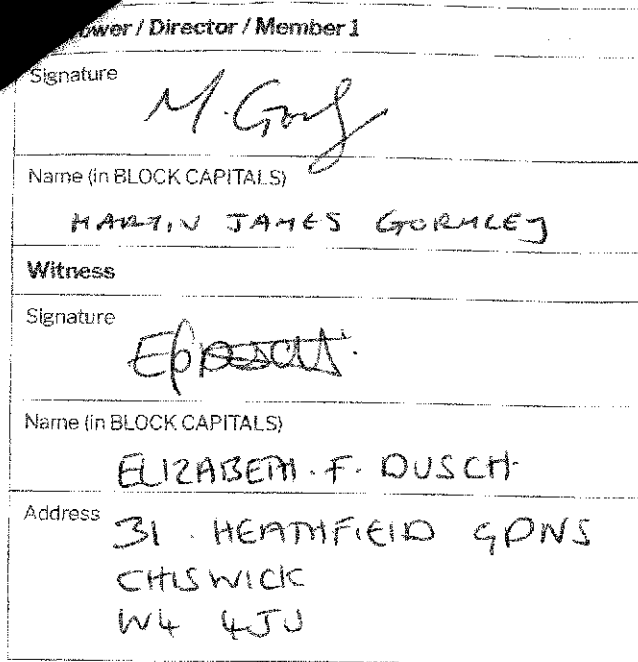 ower / Director / Member 1
Signature
M. Gor
Name (in BLOCK CAPITALS)
MARTIN JAMES GORMLEY
Witness
Signature
Name (in BLOCK CAPITALS)
ELIZABETH . F . DUSCH
Address
31 . HEATHFIELD GDNS
CHISWICK
W4 4JU